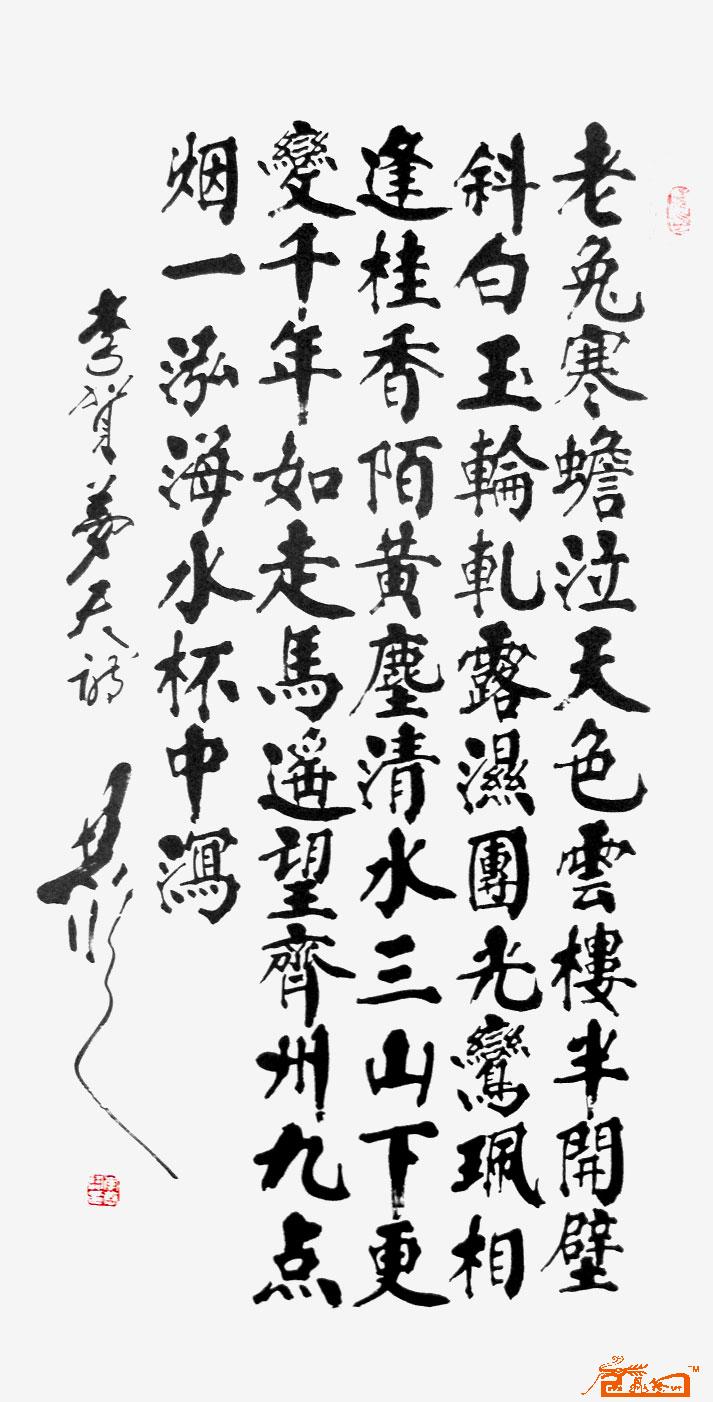 老兔寒蟾泣天色雲樓半開壁
斜白玉輪軋露濕團光鸞珮相
逢桂香陌黄塵清水三山下更
變千年如走馬遥望齊州九点
烟一泓海水杯中瀉
李賀夢天詩